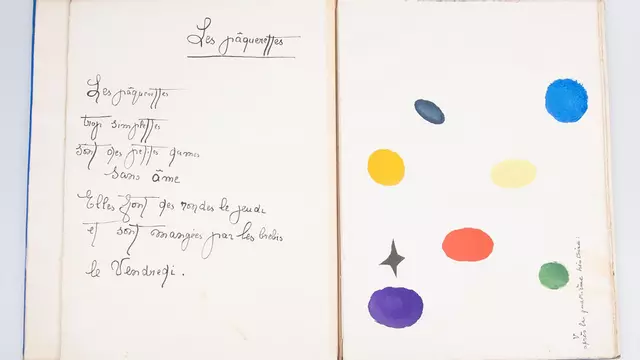 Les pâquerettes
Les pâquerettes
trop simplettes
sont des petites dames
sans âme
Elles font des rondes le jeudi
et sont mangées par les brebis
le Vendredi.
après la